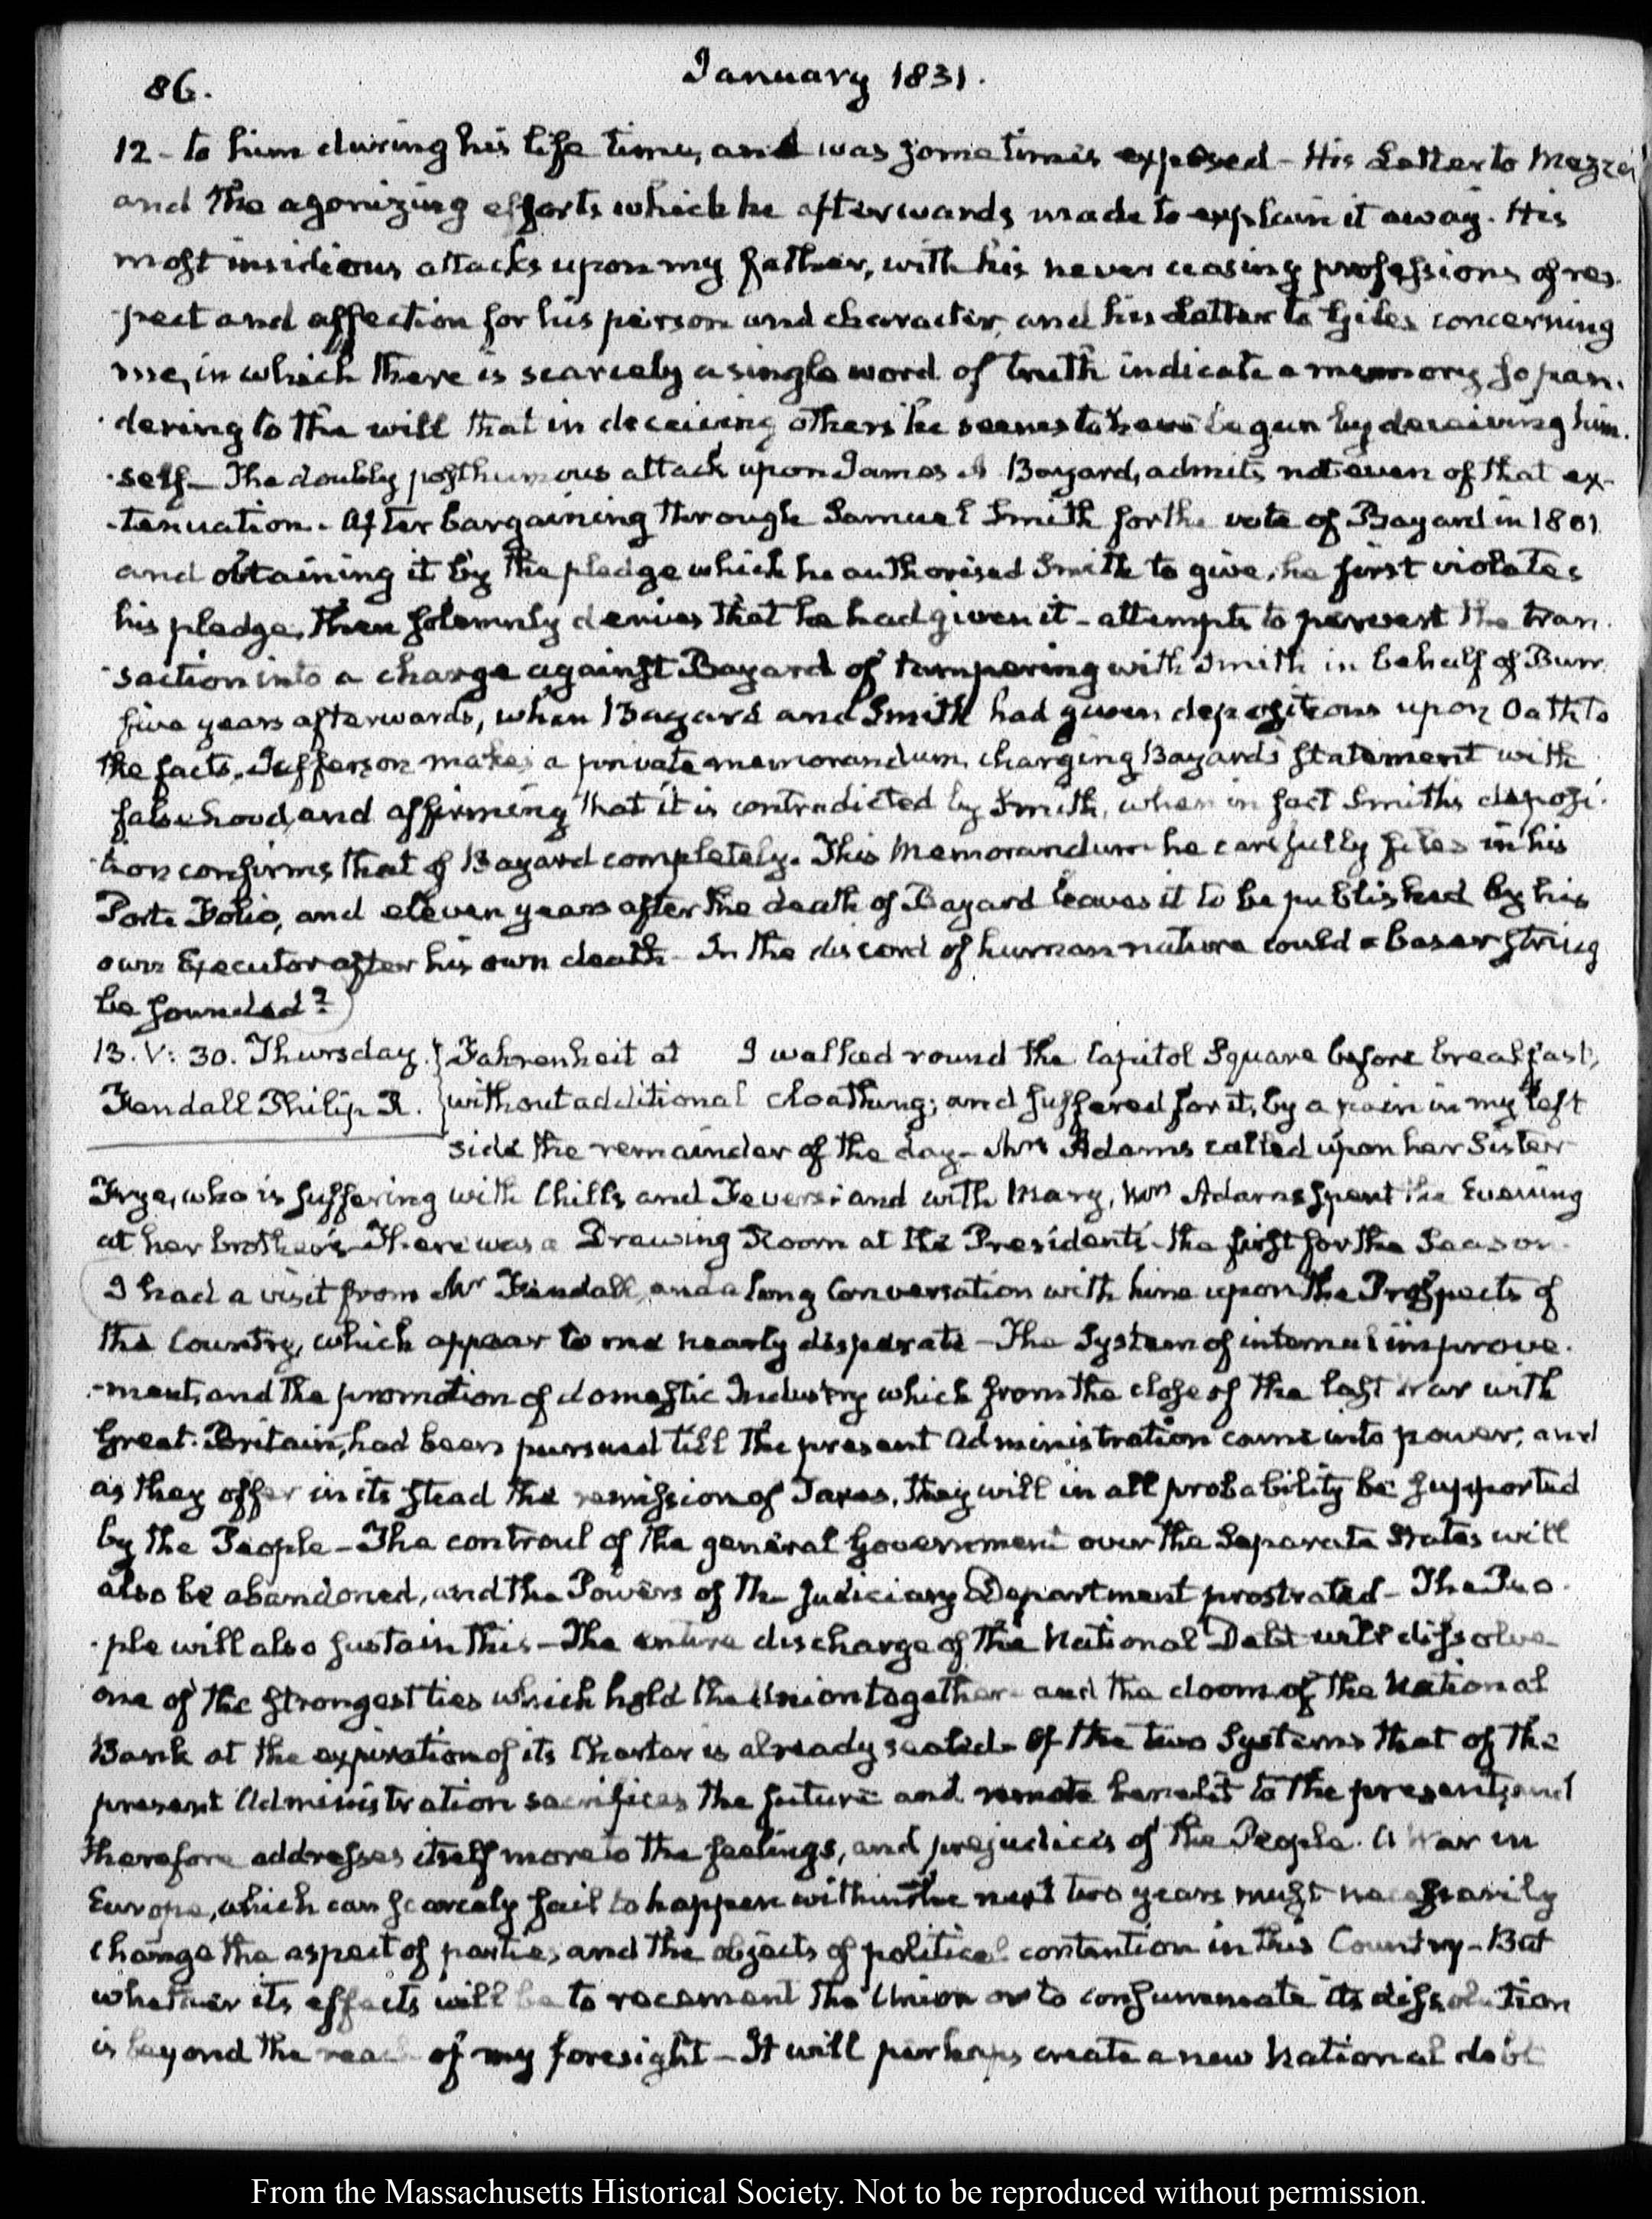 86.
January 1831.
12 - to him during his life time, and was sometimes exposed - His Letter to Mazzei
and the agonizing efforts which he afterwards made to explain it away. His
most insidious attacks upon my father, with his never ceasing professions of res-
pect and affection for his person and character, and his Letter to Giles concerning
me, in which there is scarcely a single word of truth indicate a memory so pan-
-dering to the will that in deceiving others he seems to have begun by deceiving him-
-self - The doubly posthumous attack upon James A Bayard, admits not even of that ex-
-tenuation. After bargaining through Samuel Smith for the vote of Bayard in 1801
and obtaining it by the pledge which he authorised Smith to give, he first violates
his pledge, then solemnly denies that he had given it - attempts to pervert the tran-
-saction into a charge against Bayard of tampering with Smith in behalf of Burr.
five years afterwards, when Bayard and Smith had given depositions upon Oath to
the facts, Jefferson makes a private memorandum, charging Bayard's statement with
falsehood, and affirming that it is contradicted by Smith, when in fact Smith's deposi-
-tion confirms that of Bayard completely. This Memorandum he carefully files in his
Porte Folio, and eleven years after the death of Bayard leaves it to be published by his
own Executor after his own death - In the discord of human nature could a baser string
be sounded?
13. V: 30. Thursday. Fahrenheit at I walked round the Capitol Square before breakfast,
Fendall Philip R. without additional cloathing; and suffered for it, by a pain in my left
side the remainder of the day - Mrs Adams called upon her Sister
Frye, who is suffering with Chills and Fevers: and with Mary, Wm Adams spent the Evening
at her brother's - There was a Drawing Room at the President's - the first for the Season.
I had a visit from Mr Fendall, and a long Conversation with him upon the Prospects of
the Country, which appear to me nearly desperate - The System of internal improve-
-ment, and the promotion of domestic Industry which from the close of the last War with
Great-Britain, had been pursued till the present Administration came into power; and
as they offer in its stead the remission of Taxes, they will in all probability be supported
by the People - The controul of the general Government over the Separate States will
also be abandoned, and the Powers of the Judiciary Department prostrated - The Peo-
-ple will also sustain this - The entire discharge of the National Debt will dissolve
one of the strongest ties which hold the Union together - and the doom of the National
Bank at the expiration of its Charter is already sealed - Of the two Systems that of the
present Administration sacrifices the future and remote benefit to the present, and
therefore addresses itself more to the feelings, and prejudices of the People. A War in
Europe, which can scarcely fail to happen within the next two years must necessarily
change the aspect of parties, and the objects of political contention in this Country - But
whether its effects will be to recement the Union or to consummate its dissolution
is beyond the reach of my foresight - It will perhaps create a new National debt
From the Massachusetts Historical Society. Not to be reproduced without permission.